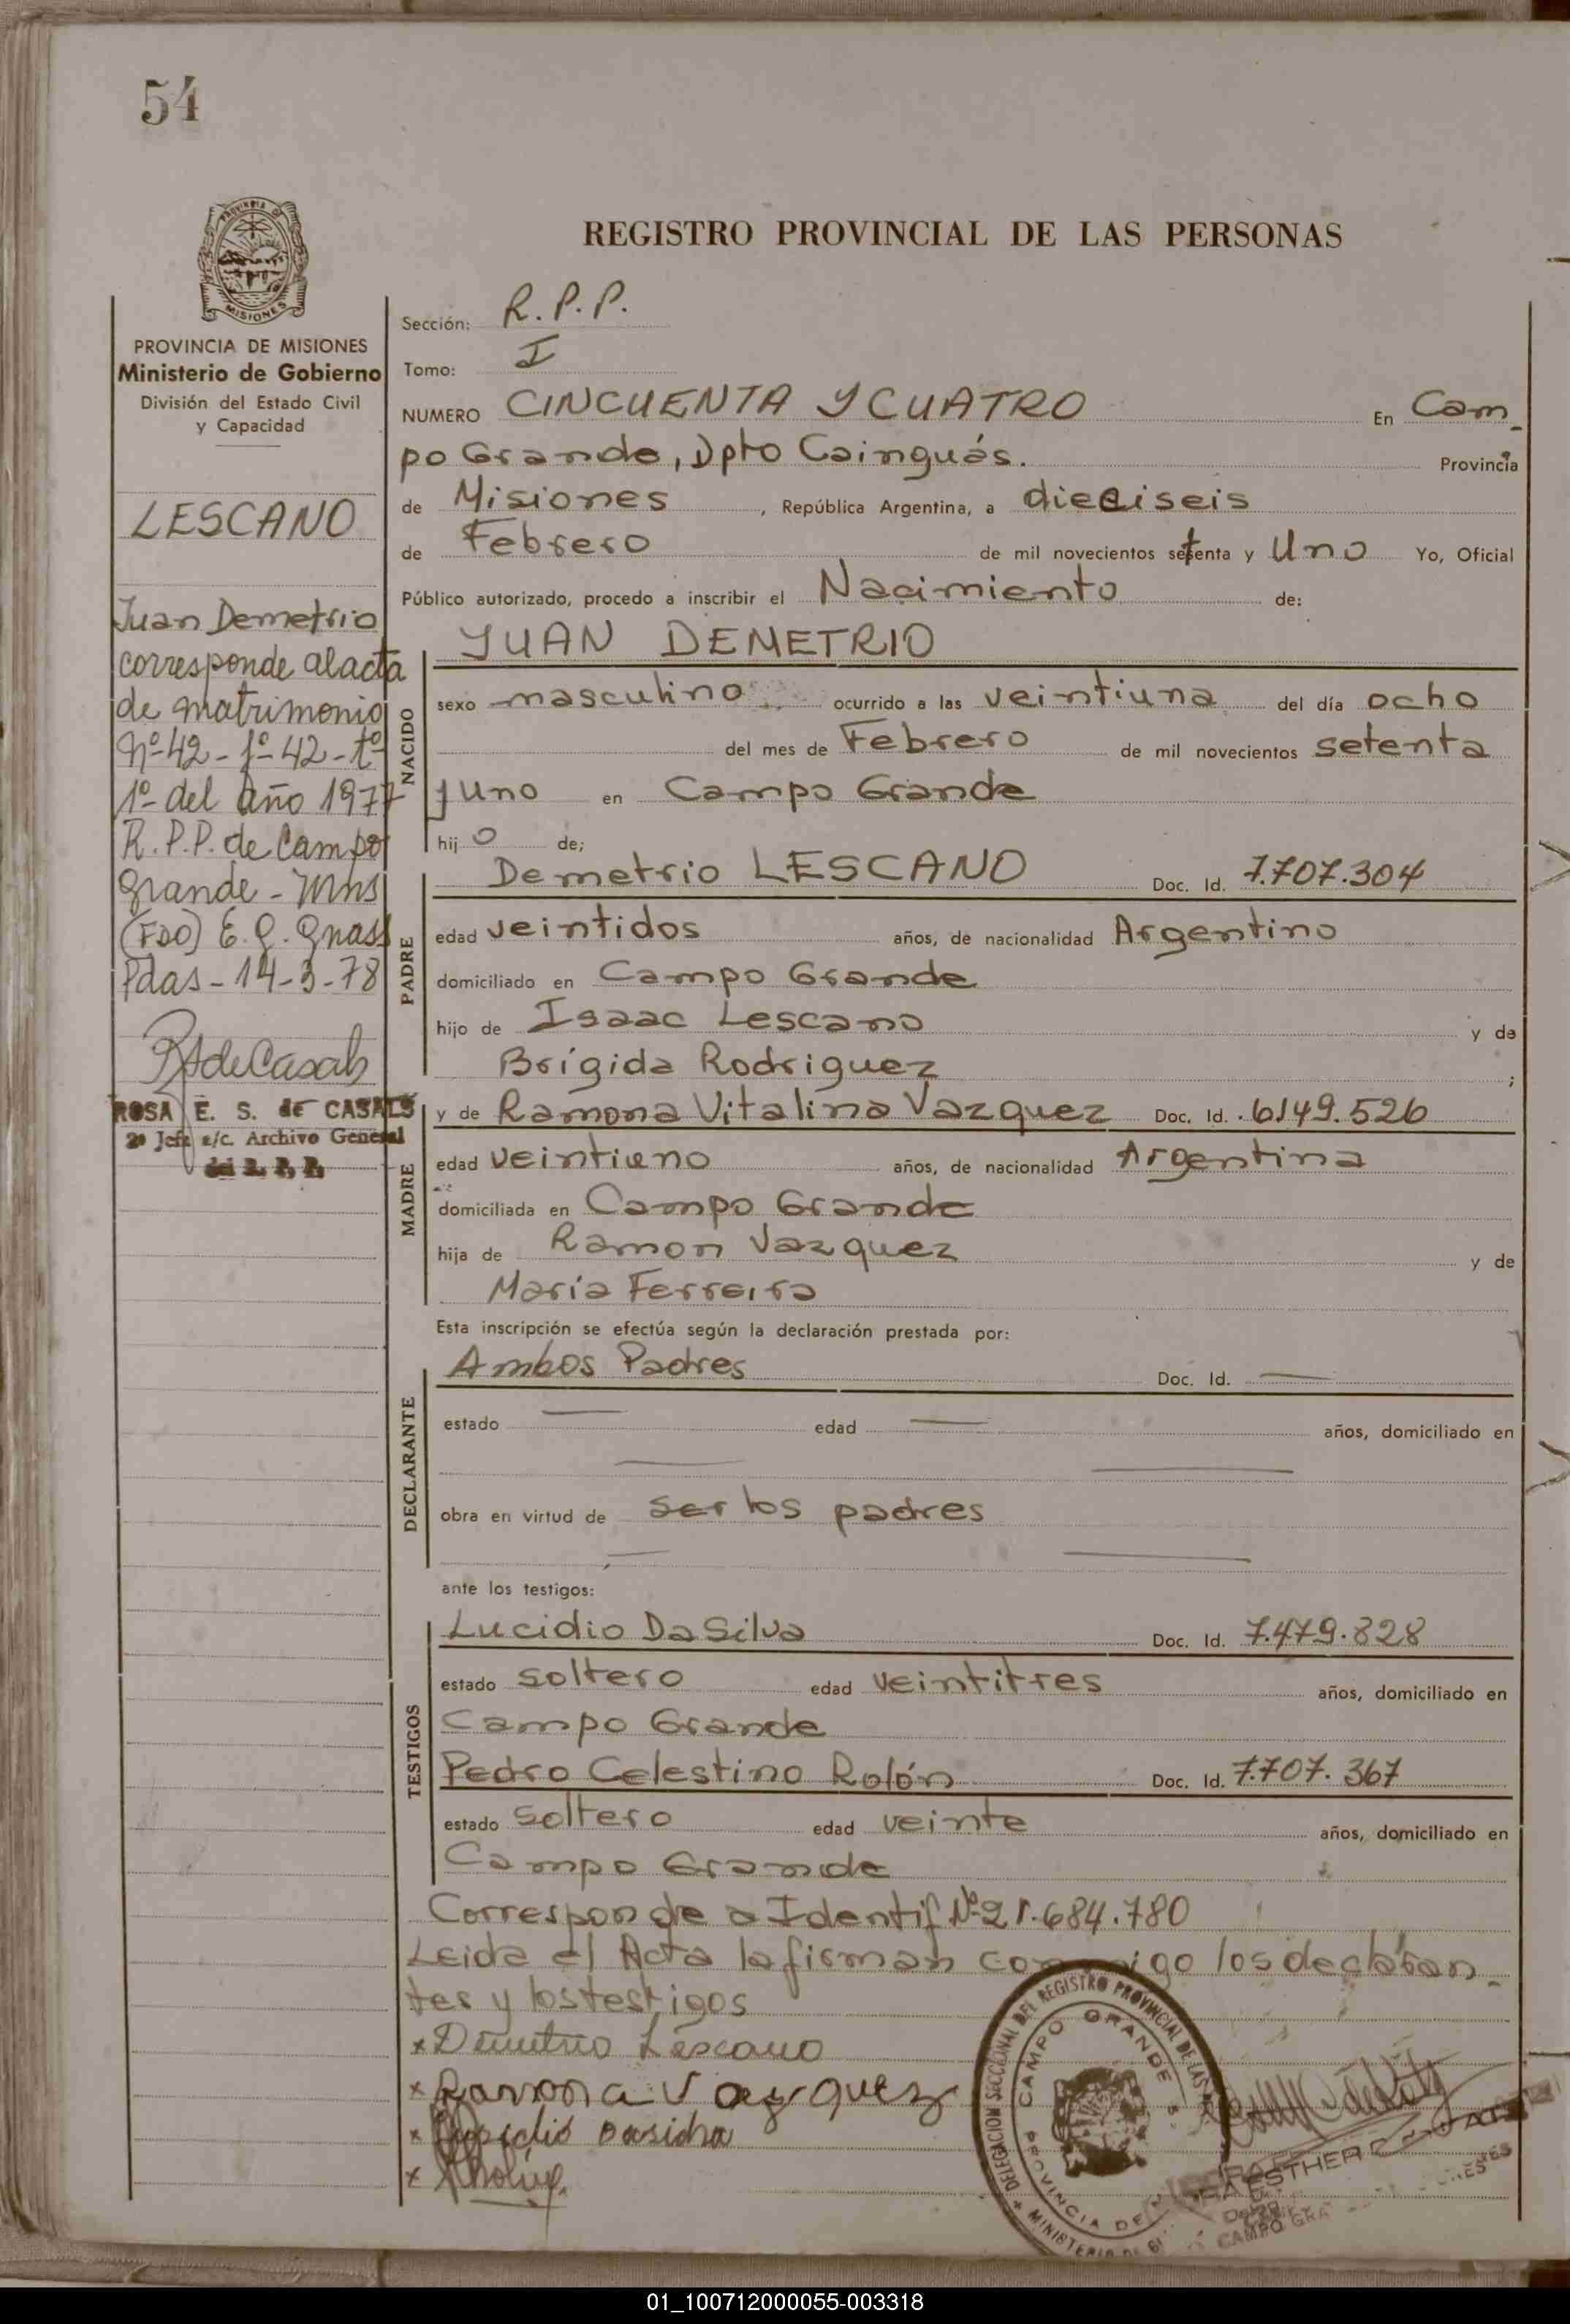 54
REGISTRO PROVINCIAL DE LAS PERSONAS
PROVINCIA DE MISIONES
Ministerio de Gobierno
División del Estado Civil
y Capacidad
LESCANO
Juan Demetrio
corresponde al acta
de matrimonio
Nº-42-fº-42-tº
1º-del año 1977
R.P.P. de Campo
Grande - Mns
(FDO) E. G. Gnass
Pdas-14-3-78
ROSA E. S. de CASALS
2º Jefe a/c. Archivo General
del R. P. P.
Sección: R.P.P.
Tomo: I
NUMERO CINCUENTA Y CUATRO En Cam_
po Grande, Dpto Cainguás. Provincia
de Misiones, República Argentina, a dieciseis
de Febrero de mil novecientos setenta y Uno Yo, Oficial
Público autorizado, procedo a inscribir el Nacimiento de:
JUAN DEMETRIO
NACIDO
sexo masculino ocurrido a las veintiuna del día ocho
del mes de Febrero de mil novecientos setenta
y Uno en Campo Grande
hijo de;
PADRE
Demetrio LESCANO Doc. Id. 7.707.304
edad veintidos años, de nacionalidad Argentino
domiciliado en Campo Grande
hijo de Isaac Lescano y de
Brígida Rodriguez ;
MADRE
y de Ramona Vitalina Vazquez Doc. Id. 6.149.526
edad veintiuno años, de nacionalidad Argentina
domiciliada en Campo Grande
hija de Ramon Vazquez y de
Maria Ferreira
Esta inscripción se efectúa según la declaración prestada por:
DECLARANTE
Ambos Padres Doc. Id. —
estado — edad — años, domiciliado en
— —
obra en virtud de ser los padres
— —
ante los testigos:
TESTIGOS
Lucidio Da Silva Doc. Id. 7.479.828
estado soltero edad veintitres años, domiciliado en
Campo Grande
Pedro Celestino Rolón Doc. Id. 7.707.367
estado soltero edad veinte años, domiciliado en
Campo Grande
Corresponde a Identif Nº 21.684.780
Leida el Acta la firman conmigo los declaran_
tes y los testigos
x Demetrio Lescano
x Ramona Vazquez
DELEGACION SECCIONAL DEL REGISTRO PROVINCIAL DE LAS
CAMPO GRANDE
PROVINCIA DE
MINISTERIO DE
ESTHER
CAMPO GRA
01_100712000055-003318